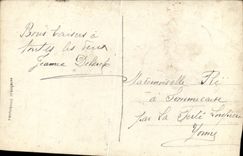 Bons baisers à
toutes les deux
Jeanne
Mademoiselle
à Sommecaise
par La Ferté Loupière
Yonne